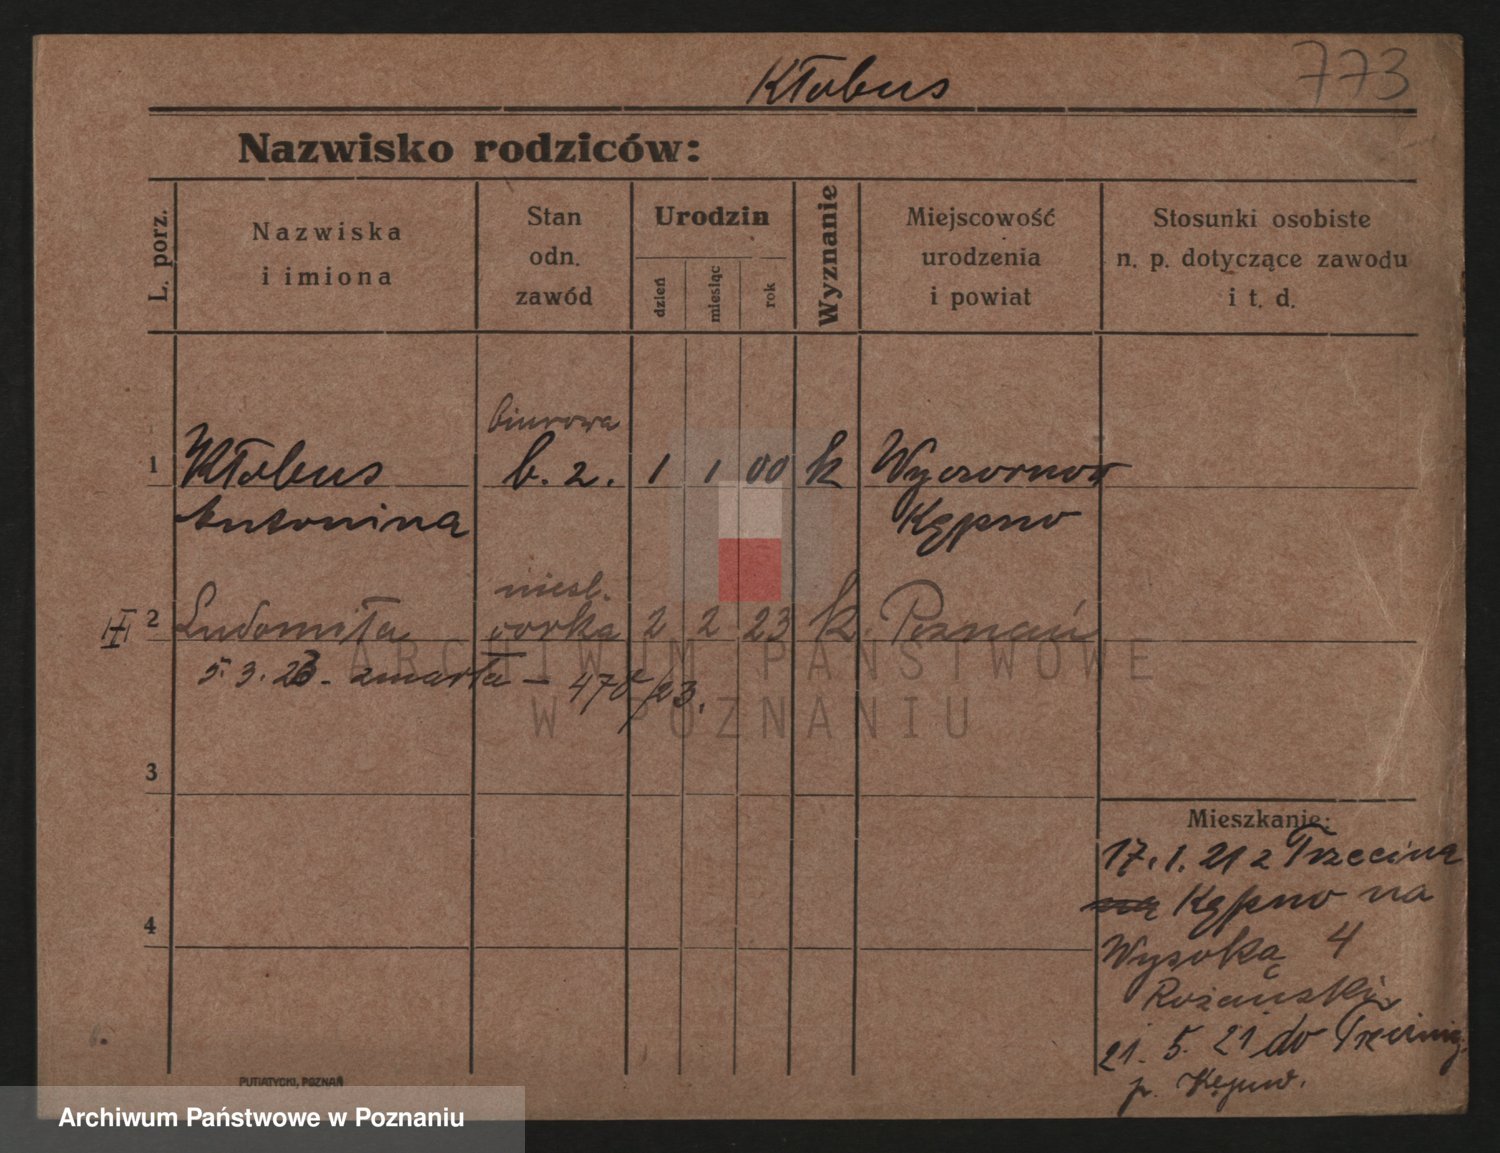 Kłobus 773
Nazwisko rodziców:
L. porz.
Nazwiska
i imiona
Stan
odn.
zawód
Urodzin
dzień
miesiąc
rok
Wyznanie
Miejscowość
urodzenia
i powiat
Stosunki osobiste
n. p. dotyczące zawodu
i t. d.
biurowa
1 Kłobus b. z. 1 1 00 k
Antonina Kępno
niesl.
2 Ludomiła córka 2 2 23 k. Poznań
5. 3. 23 - zmarła - 470/23.
ARCHIWUM PAŃSTWOWE
W POZNANIU
3
Mieszkanie:
17. 1. 21 z Trzecina
Kępno na
4
Wysoką 4
Różański
21. 5. 21 do
p. Kępno.
PUTIATYCKI, POZNAŃ
Archiwum Państwowe w Poznaniu